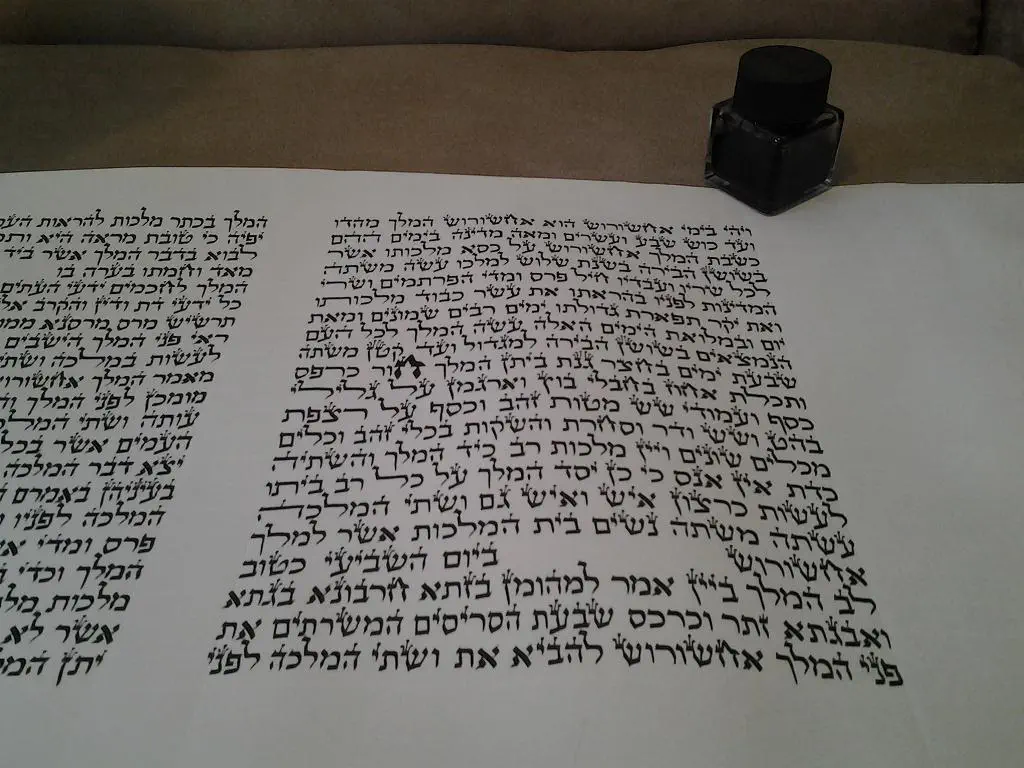 ויהי בימי אחשורוש הוא אחשורוש המלך מהדו
ועד כוש שבע ועשרים ומאה מדינה בימים ההם
כשבת המלך אחשורוש על כסא מלכותו אשר
בשושן הבירה בשנת שלוש למלכו עשה משתה
לכל שריו ועבדיו חיל פרס ומדי הפרתמים ושרי
המדינות לפניו בהראתו את עשר כבוד מלכותו
ואת יקר תפארת גדולתו ימים רבים שמונים ומאת
יום ובמלואת הימים האלה עשה המלך לכל העם
הנמצאים בשושן הבירה למגדול ועד קטן משתה
שבעת ימים בחצר גנת ביתן המלך חור כרפס
ותכלת אחוז בחבלי בוץ וארגמן על גלילי
כסף ועמודי שש מטות זהב וכסף על רצפת
בהט ושש ודר וסחרת והשקות בכלי זהב וכלים
מכלים שונים ויין מלכות רב כיד המלך והשתיה
כדת אין אנס כי כן יסד המלך על כל רב ביתו
לעשות כרצון איש ואיש גם ושתי המלכה
עשתה משתה נשים בית המלכות אשר למלך
אחשורוש ביום השביעי כטוב
לב המלך ביין אמר למהומן בזתא חרבונא בגתא
ואבגתא זתר וכרכס שבעת הסריסים המשרתים את
פני המלך אחשורוש להביא את ושתי המלכה לפני
המלך בכתר מלכות להראות
יפיה כי טובת מראה היא
לבוא בדבר המלך אשר ביד
מאד וחמתו בערה בו
המלך לחכמים ידעי העתים
כל ידעי דת ודין והקרב
תרשיש מרס מרסנא
ראי פני המלך הישבים
לעשות במלכה
מאמר המלך
מומכן לפני המלך
עותה ושתי
העמים אשר
יצא דבר המלכה
בעיניהן באמרם
המלכה לפניו
פרס ומדי
המלך וכדי
מלכות
אשר לא
יתן